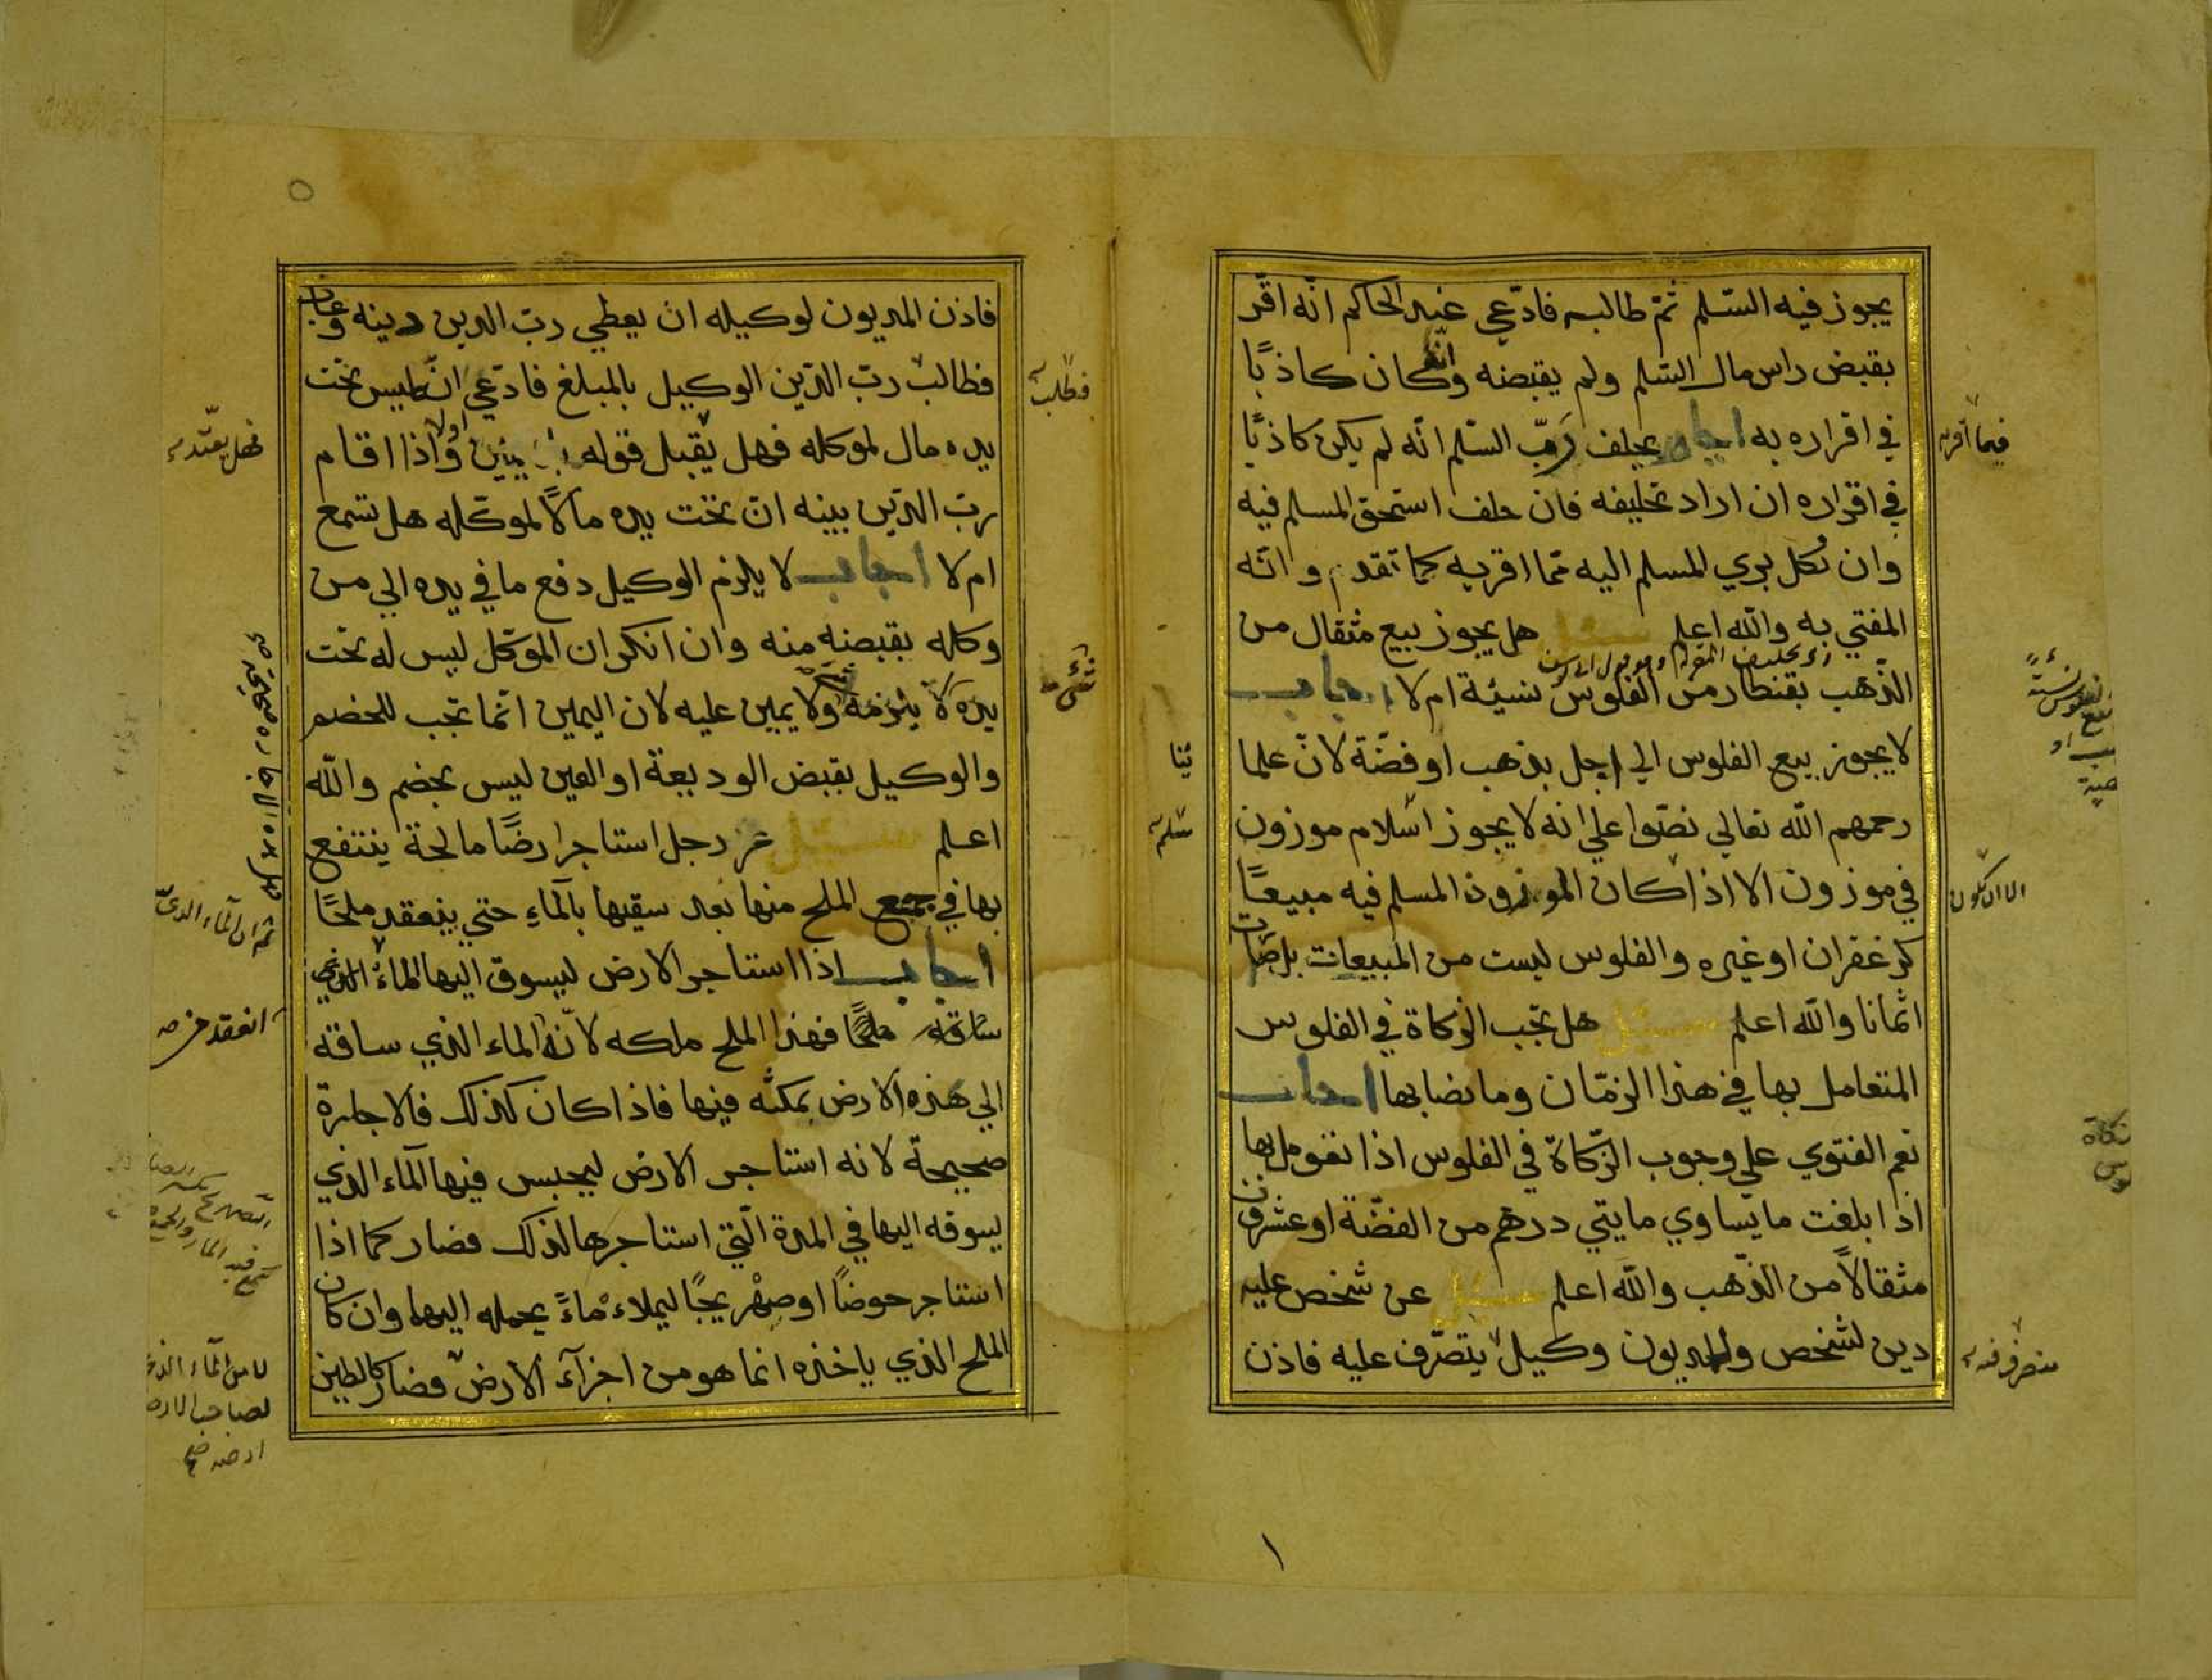 يجوز فيه السّلم ثمّ طالبه فادّعي عند الحاكم انّه اقّر
بقبض راس مال السّلم ولم يقبضه وانّه كان كاذبًا
في اقراره به اجاب يحلف رَبّ السّلم انّه لم يكن كاذبًا
في اقراره ان اراد تحليفه فان حلف استحق المسلم فيه
وان نكل بري المسلم اليه ممّا اقربه كما تقدم وانّه
المفتي به والله اعلم سئل هل يجوز بيع مثقال من
الذّهب بقنطار من الفلوس نسيئة ام لا اجاب
لا يجوز بيع الفلوس الي اجل بذهب او فضّة لانّ علما
رحمهم الله تعالي نصّوا علي انه لا يجوز اسلام موزون
في موزون الا اذا كان الموزون المسلم فيه مبيعًا
كزعفران او غيره والفلوس ليست من المبيعات بل صارت
اثمانا والله اعلم سئل هل تجب الزكاة في الفلوس
المتعامل بها في هذا الزمّان وما نصابها اجاب
نعم الفتوي علي وجوب الزّكاة في الفلوس اذا تعومل بها
اذا بلغت ما يساوي مايتي درهم من الفضّة او عشرين
مثقالاً من الذّهب والله اعلم سئل عن شخص عليه
دين لشخص والمديون وكيل يتصّرف عليه فاذن
فيما اقربه
ينا
سلم
الا ان تكون
فاذن المديون لوكيله ان يعطي ربّ الدين دينه وغاب
فطالب ربّ الدّين الوكيل بالمبلغ فادّعي انّه ليس تحت
يده مال لموكله فهل يقبل قوله بيمين اولا واذا اقام
ربّ الدّين بينه انّ تحت يده مالاً لموكّله هل تسمع
ام لا اجاب لا يلزم الوكيل دفع ما في يده الي من
وكله بقبضه منه وان انكر ان الموكّل ليس له تحت
يده لا يلزمه ولا يمين عليه لان اليمين انّما تجب للخصم
والوكيل بقبض الوديعة او العين ليس بخصم والله
اعلم سئل عن رجل استاجر ارضًا مالحة ينتفع
بها في جمع الملح منها بعد سقيها بالماءِ حتي ينعقد ملحًا
اجاب اذا استاجر الارض ليسوق اليها الماء الذي
ساقه ملحًا فهذا الملح ملكه لانّه الماء الذي ساقه
الي هذه الارض بمكثه فيها فاذا كان كذلك فالاجارة
صحيحة لانه استاجر الارض ليحبس فيها الماء الذي
يسوقه اليها في المدة الّتي استاجرها لذلك فصار كما اذا
استاجر حوضًا او صهريجًا ليملاءه ماءً يحمله اليها وان كان
الملح الذي ياخذه انما هو من اجزآء الارض فصار كالطين
فطلب
فهل يعتد
ثم ان الماء الذي
انعقد
لا من الماء الذي
لصاحب الارض